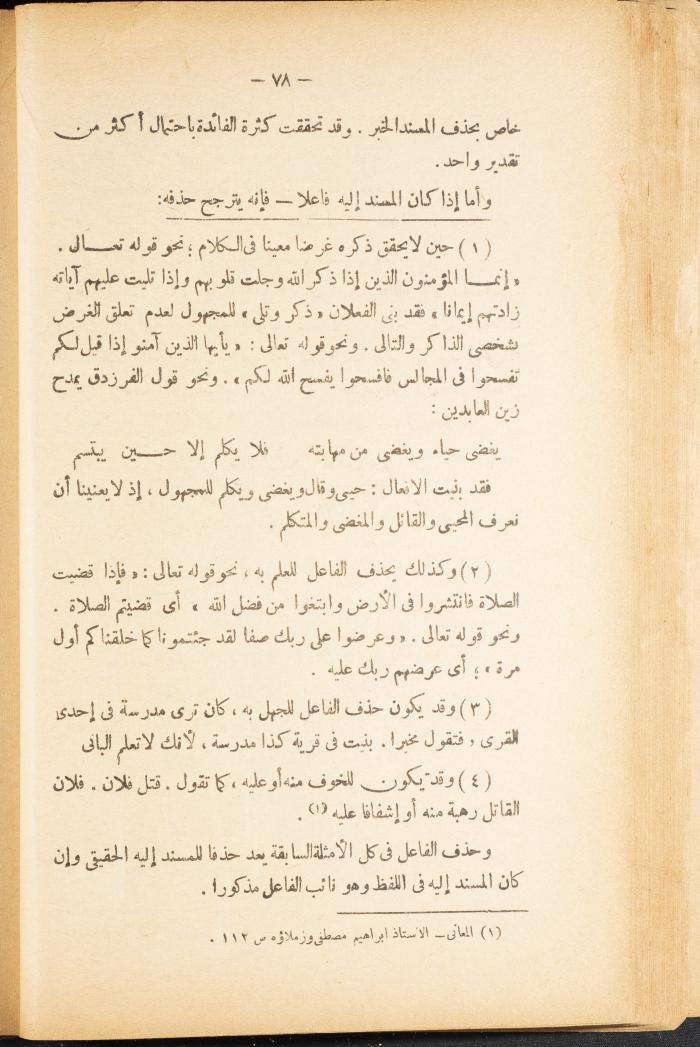 — ٧٨ —
خاص بحذف المسند الخبر . وقد تحققت كثرة الفائدة باحتمال أكثر من
تقدير واحد .
وأما إذا كان المسند إليه فاعلا — فإنه يترجح حذفه :
( ١ ) حين لا يحقق ذكره غرضا معينا فى الكلام ؛ نحو قوله تعـالى .
« إنمـا المؤمنون الذين إذا ذكر الله وجلت قلوبهم وإذا تليت عليهم آياته
زادتهم إيمانا » فقد بنى الفعلان « ذكر وتلى » للمجهول لعدم تعلق الغرض
بشخصى الذاكر والتالى . ونحو قوله تعالى : « يأيها الذين آمنو إذا قيل لكم
تفسحوا فى المجالس فافسحوا يفسح الله لكم » . ونحو قول الفرزدق يمدح
زين العابدين :
يغضى حياء ويغضى من مهابته فلا يكلم إلا حـين يبتسم
فقد بنيت الافعال : حيى وقال ويغضى ويكلم للمجهول ، إذ لا يعنينا أن
نعرف المحيى والقائل والمغضى والمتكلم .
( ٢ ) وكذلك يحذف الفاعل للعلم به ، نحو قوله تعالى : « فإذا قضيت
الصلاة فانتشروا فى الأرض وابتغوا من فضل الله » أى قضيتم الصلاة .
ونحو قوله تعالى . « وعرضوا على ربك صفا لقد جئتمونا كما خلقناكم أول
مرة » ؛ أى عرضهم ربك عليه .
( ٣ ) وقد يكون حذف الفاعل للجهل به ، كان ترى مدرسة فى إحدى
القرى ، فتقول مخبرا . بنيت فى قرية كذا مدرسة ، لأنك لا تعلم البانى
( ٤ ) وقد يكون للخوف منه أو عليه ، كما تقول . قتل فلان . فلان
القاتل رهبة منه أو إشفاقا عليه (١) .
وحذف الفاعل فى كل الأمثلة السابقة يعد حذفا للمسند إليه الحقيقى وإن
كان المسند إليه فى اللفظ وهو نائب الفاعل مذكورا .
(١) المعانى — الاستاذ ابراهيم مصطفى وزملاؤه ص ١١٢ .